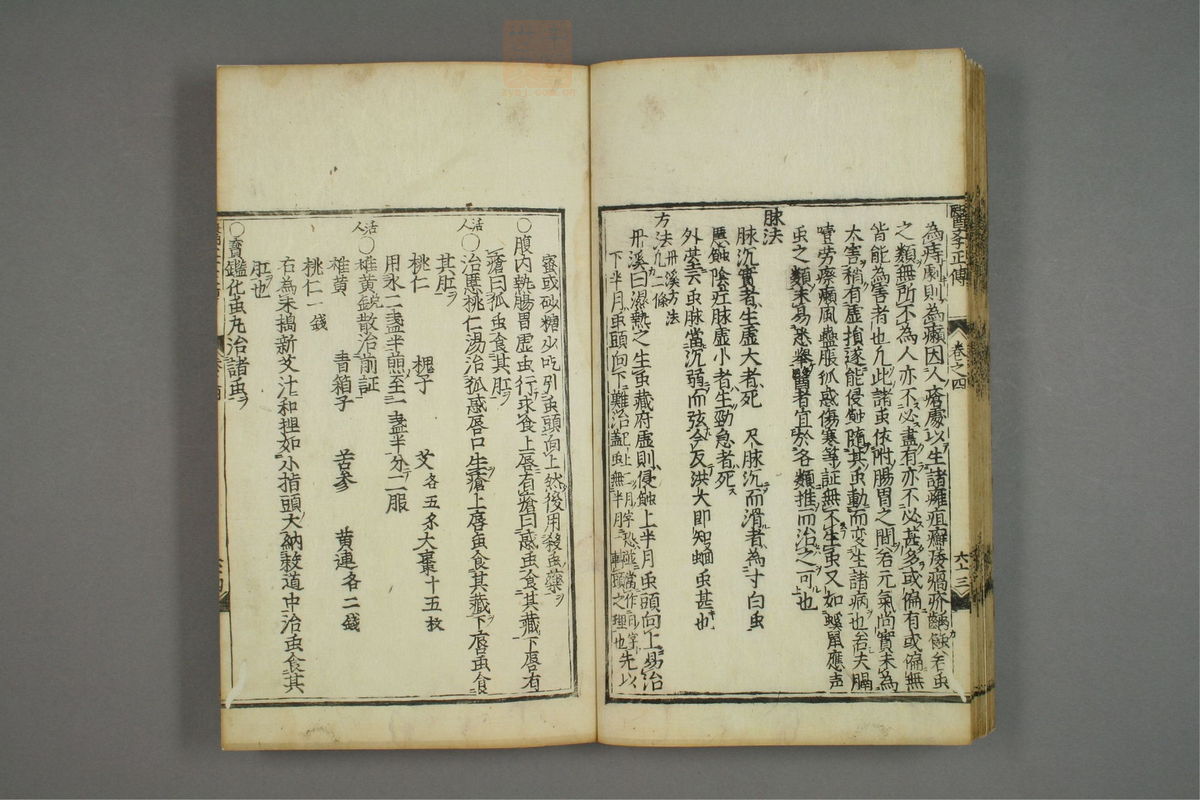 醫學正傳
卷之四
六十三
為痔劇則為癩因人瘡處以生諸癰疽癬瘻瘑疥齲蝕等虫
之類無所不為人亦不必盡有亦不必甚多或偏有或偏無
皆能為害者也凡此諸虫依附腸胃之間若元氣尚實未為
大害稍有虛損遂能侵蝕隨其虫動而変生諸病也若夫膈
噎勞瘵癩風蠱脹狐惑傷寒等証無不生虫又如蟯鼠應声
虫之類未易悉舉醫者宜於各類推而治之可也
脉法
脉沉實者生虛大者死 尺脉沉而滑者為寸白虫
䘌蝕陰疘脉虛小者生勁急者死
外臺云虫脉當沉弱而弦今反洪大即知蛔虫甚也
方法凡九條 丹溪方法一條
丹溪曰濕熱之生虫藏府虛則侵蝕上半月虫頭向上易治
下半月虫頭向下難治 先以
蜜或砂糖少吃引虫頭向上然後用殺虫藥
○腹内熱腸胃虛虫行求食上唇有瘡曰惑虫食其藏下唇有
瘡曰狐虫食其肛
活人○治䘌桃仁湯治狐惑唇口生瘡上唇虫食其藏下唇虫食
其肛
桃仁 槐子 艾各五分大棗十五枚
用水二盞半煎至一盞半分二服
活人○雄黄銳散治前証
雄黄 青箱子 苦參 黄連各二錢
桃仁一錢
右為末搗新艾汁和揑如小指頭大納穀道中治虫食其
肛也
○寶鑑化虫丸治諸虫